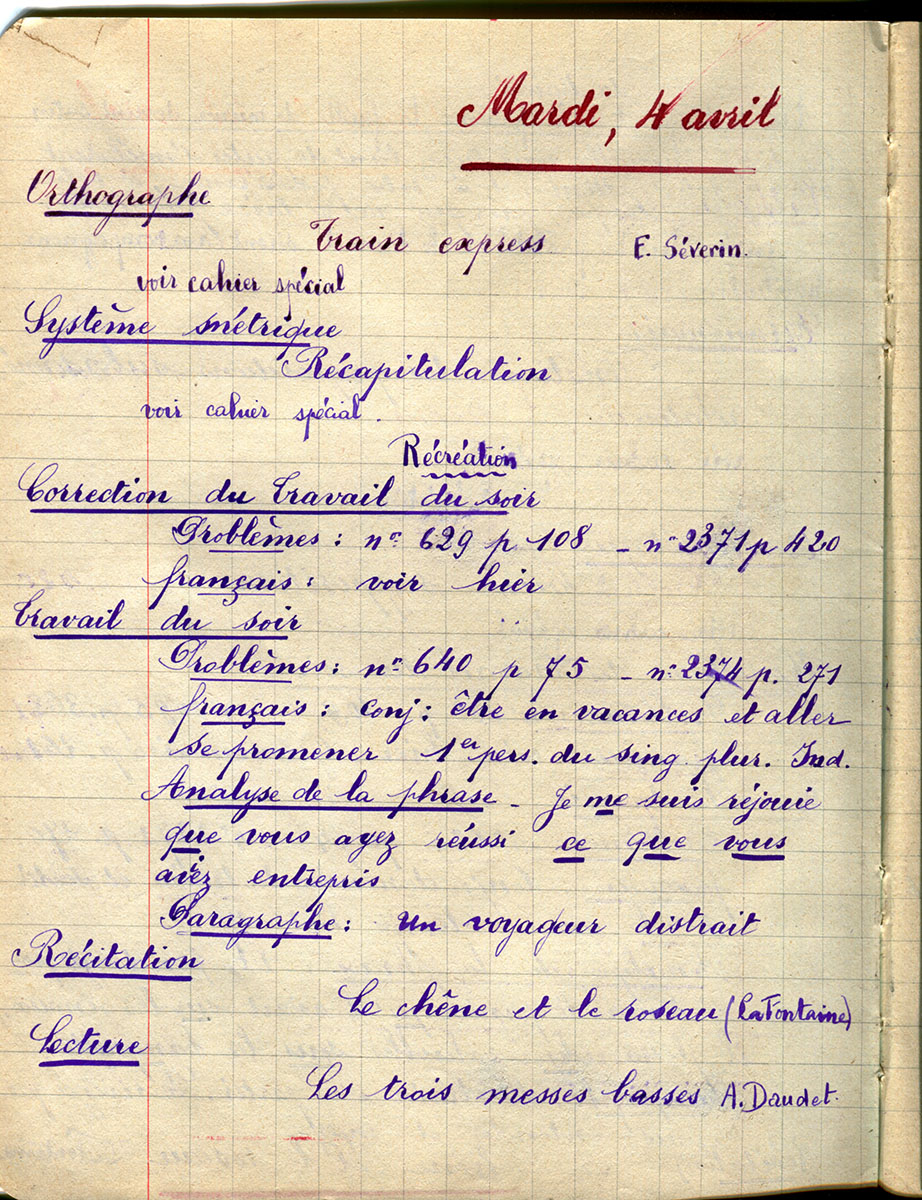 Mardi, 4 avril
Orthographe
Train express E. Séverin.
voir cahier spécial
Système métrique
Récapitulation
voir cahier spécial.
Récréation
Correction du travail du soir
Problèmes : nº 629 p 108 - nº 2371 p 420
français : voir hier
Travail du soir
Problèmes : nº 640 p 75 - nº 2374 p. 271
français : conj : être en vacances et aller
se promener 1er pers. du sing plur. Ind.
Analyse de la phrase - Je me suis réjouie
que vous ayez réussi ce que vous
aviez entrepris
Paragraphe : un voyageur distrait
Récitation
Le chêne et le roseau (La Fontaine)
Lecture
Les trois messes basses A. Daudet.